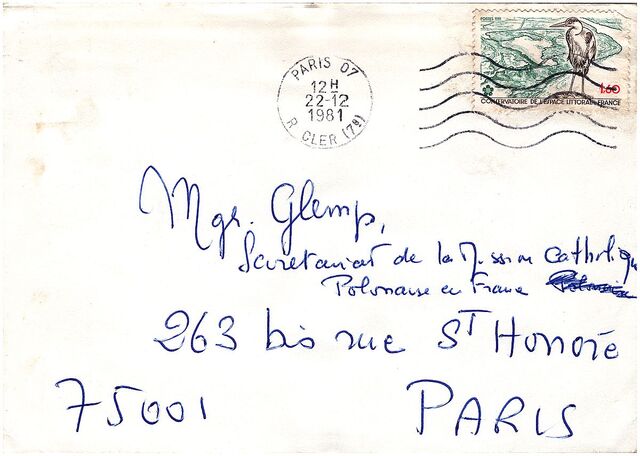 POSTES 1981
1.60
CONSERVATOIRE DE L'ESPACE LITTORAL.FRANCE
PARIS 07
12H
22-12
1981
R CLER (7e)
Mgr. Glemp,
Secretariat de la Mission Catholique
Polonaise en France
263 bis rue St Honoré
75001 PARIS